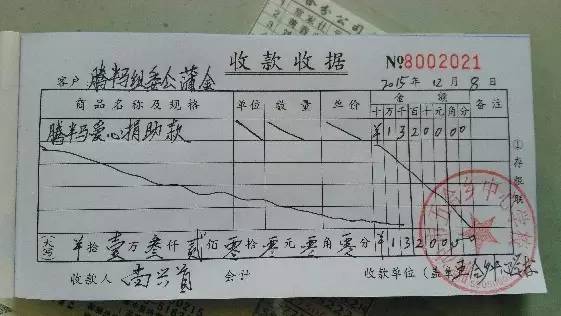 收款收据 №8002021
客户 腾半马组委会蒲金 2015年12月8日
商品名称及规格 单位 数量 单价 金额 备注
十万千百十元角分
腾半马爱心捐助款 ¥1320000
①存根联
(大写) ¥拾壹万叁仟贰佰零拾零元零角零分 ¥1320000
收款人 尚兴首 会计 收款单位(盖章)